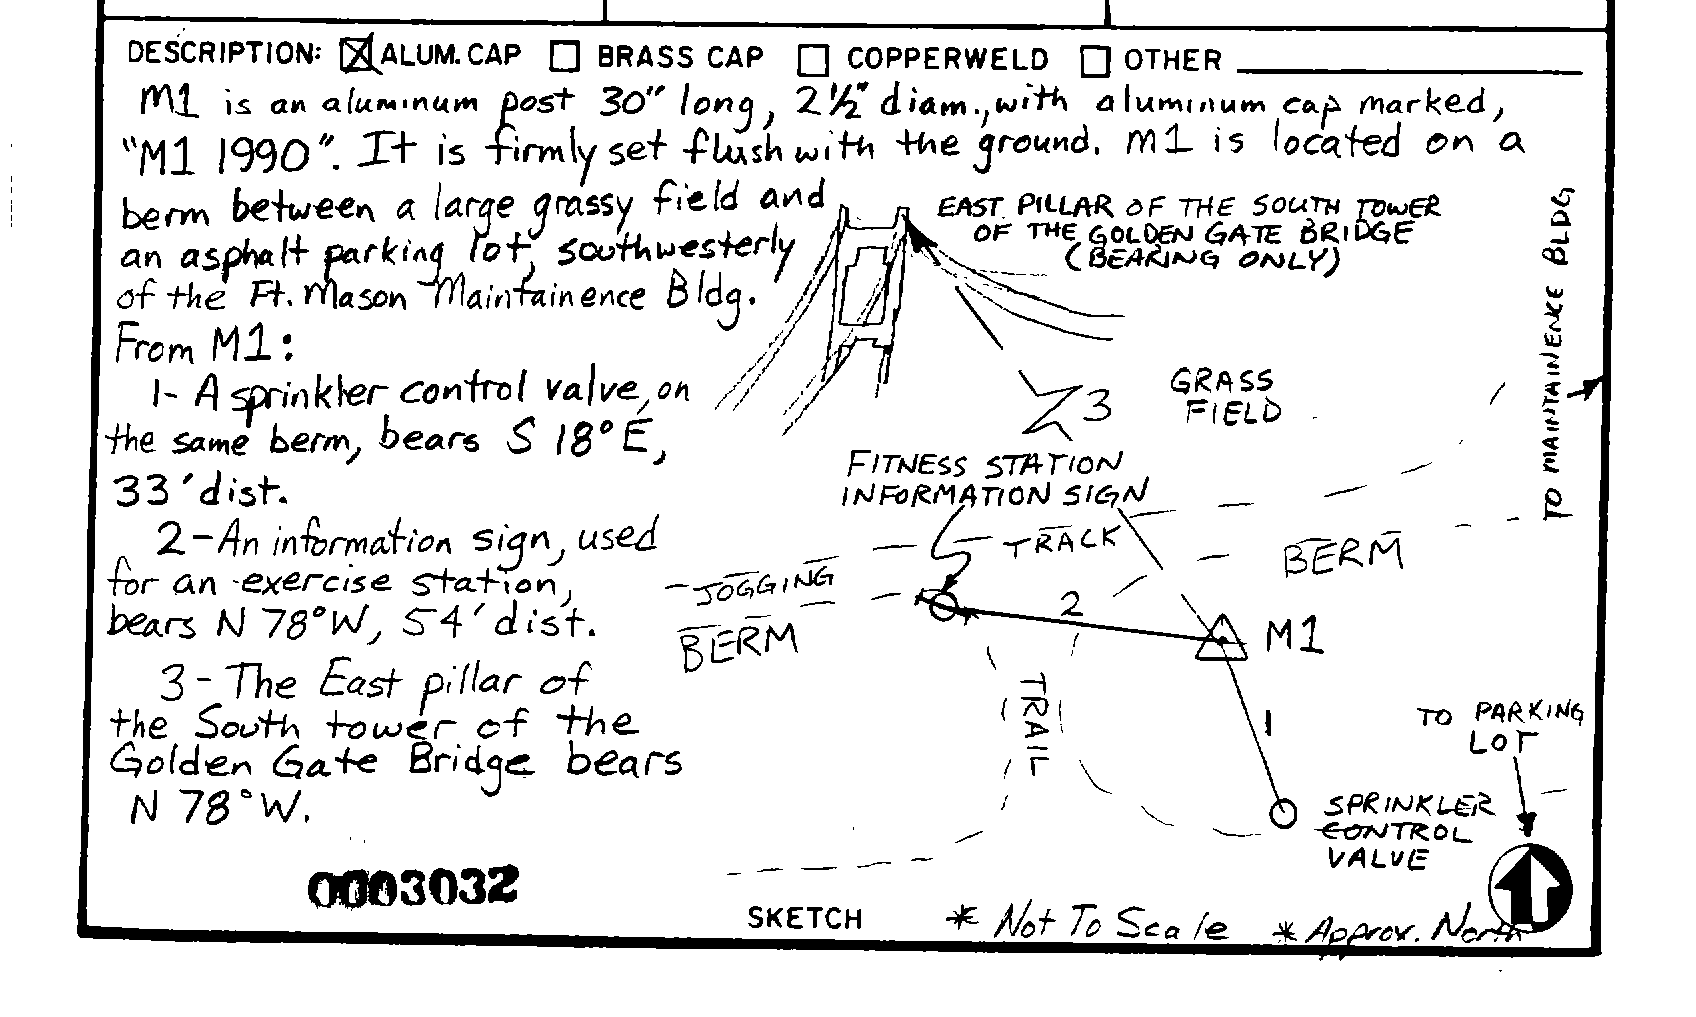 DESCRIPTION: ☒ ALUM. CAP ☐ BRASS CAP ☐ COPPERWELD ☐ OTHER
M1 is an aluminum post 30" long, 2½" diam., with aluminum cap marked,
"M1 1990". It is firmly set flush with the ground. M1 is located on a
berm between a large grassy field and
an asphalt parking lot, southwesterly
of the Ft. Mason Maintainence Bldg.
From M1:
1- A sprinkler control valve, on
the same berm, bears S 18° E,
33' dist.
2- An information sign, used
for an exercise station,
bears N 78° W, 54' dist.
3- The East pillar of
the South tower of the
Golden Gate Bridge bears
N 78° W.
0003032
EAST PILLAR OF THE SOUTH TOWER
OF THE GOLDEN GATE BRIDGE
(BEARING ONLY)
TO MAINTAINENCE BLDG
3
GRASS
FIELD
FITNESS STATION
INFORMATION SIGN
JOGGING TRACK
BERM
BERM
2
M1
TRAIL
1
TO PARKING
LOT
SPRINKLER
CONTROL
VALVE
SKETCH
* Not To Scale
* Approx. North